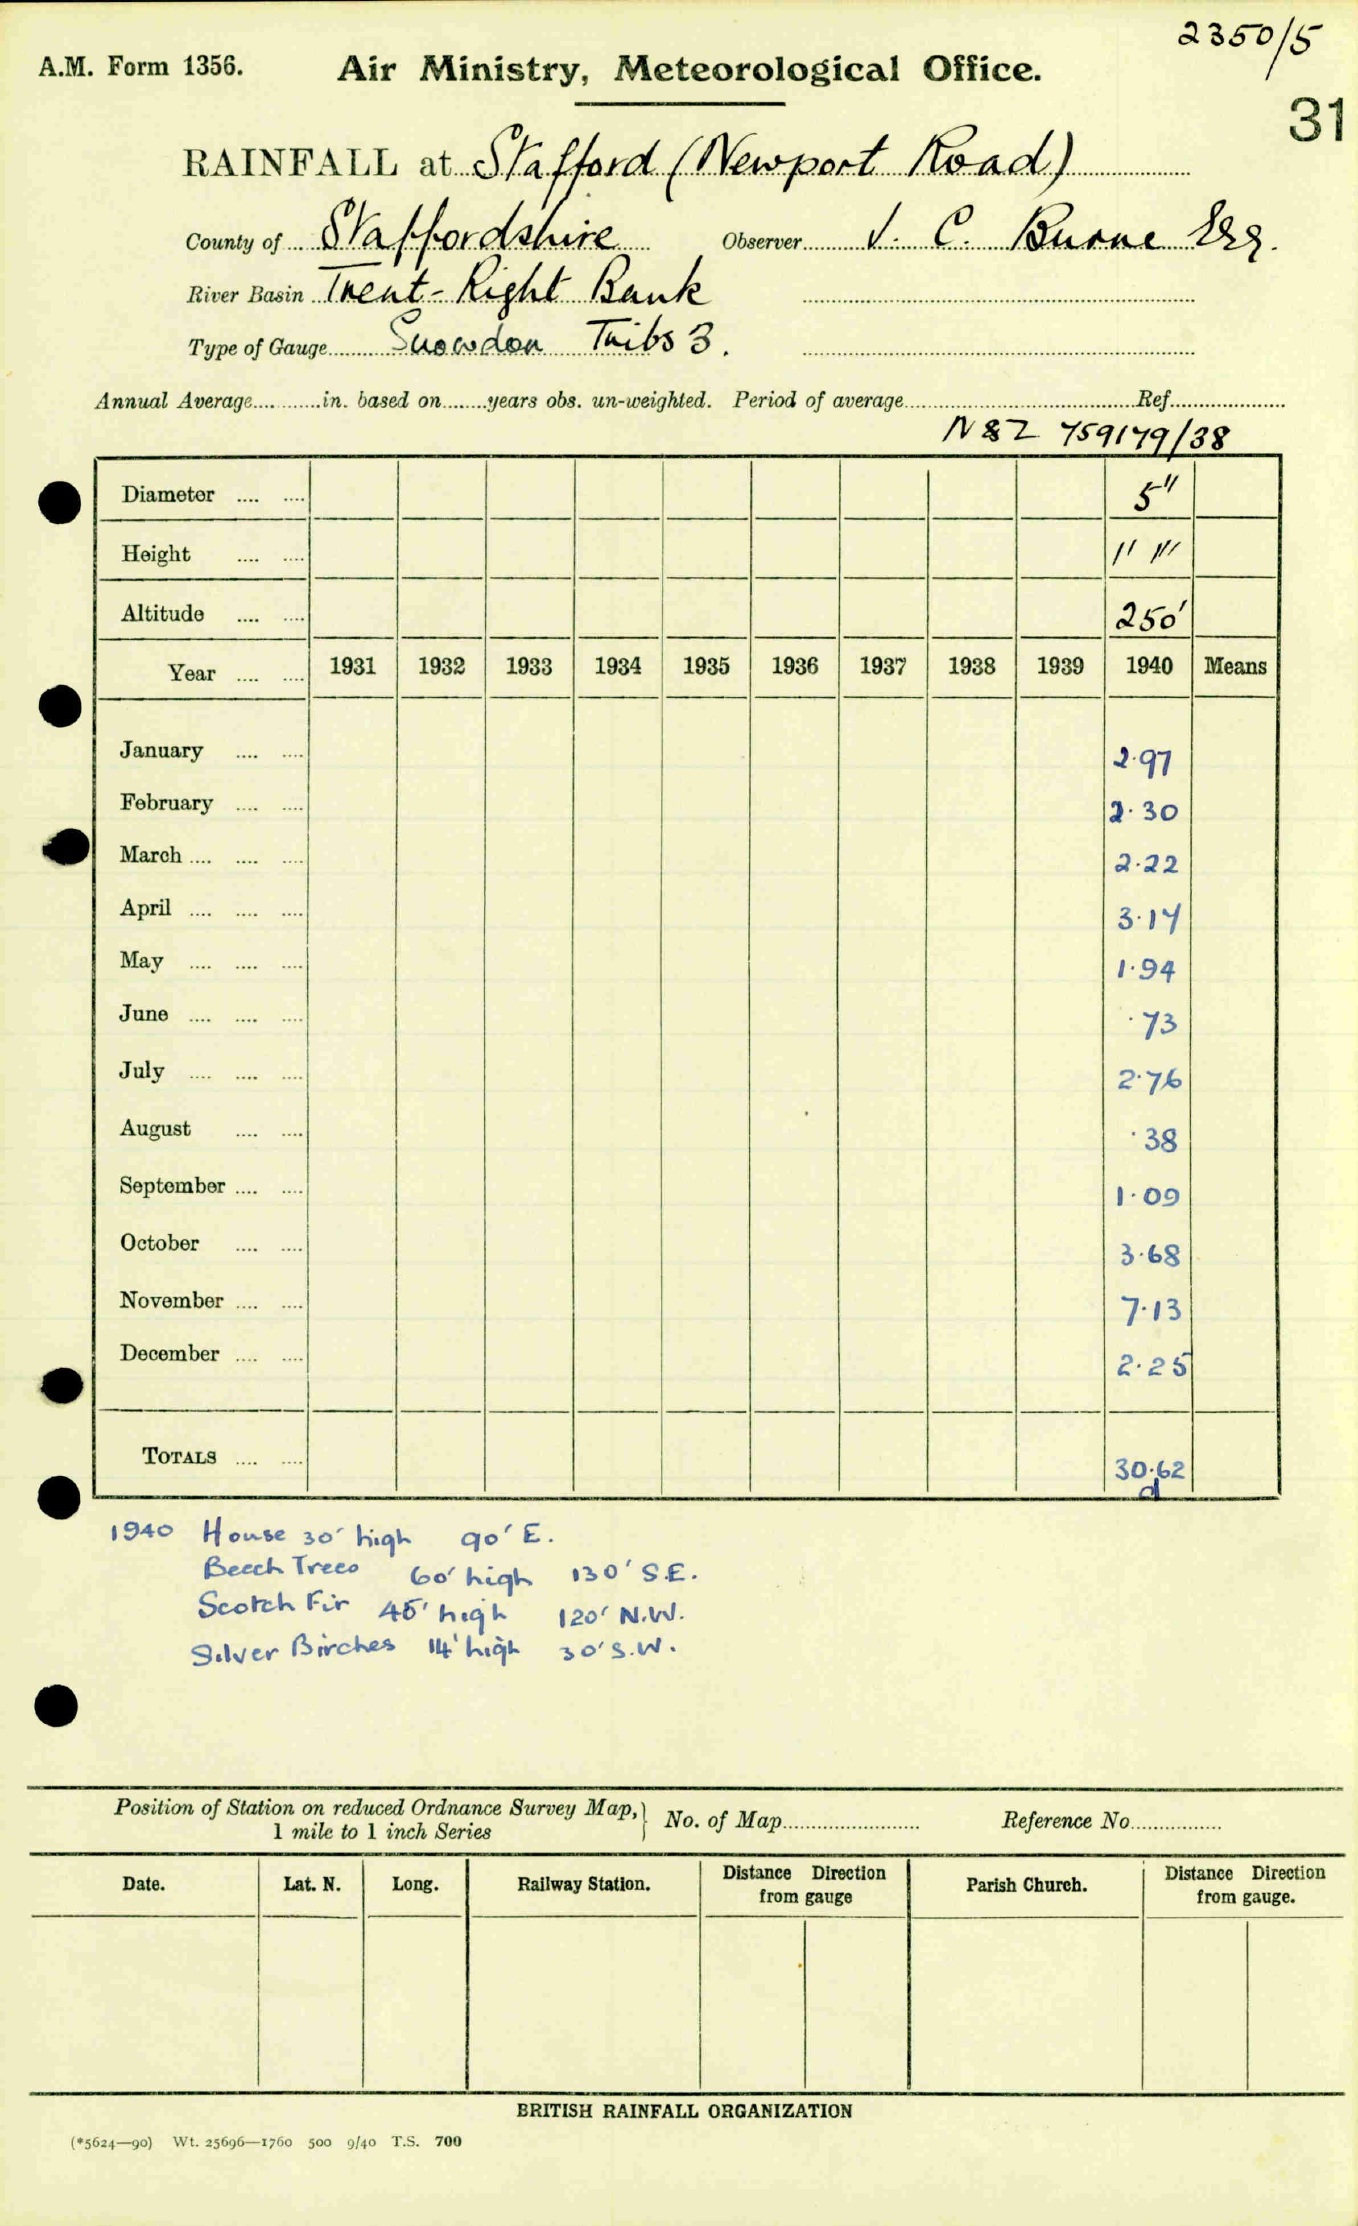 2350/5
A.M. Form 1356. Air Ministry, Meteorological Office.
31
RAINFALL at Stafford (Newport Road)
County of Staffordshire Observer J. C. Burne Esq.
River Basin Trent - Right Bank
Type of Gauge Snowdon Tribs 3.
Annual Average............in. based on........years obs. un-weighted. Period of average.................... Ref....................
759179/38
Diameter .... .... 5"
Height .... .... 1' 1"
Altitude .... .... 250'
Year .... .... 1931 1932 1933 1934 1935 1936 1937 1938 1939 1940 Means
January .... .... 2·97
February .... .... 2·30
March .... .... .... 2·22
April .... .... .... 3·17
May .... .... .... 1·94
June .... .... .... ·73
July .... .... .... 2·76
August .... .... ·38
September .... .... 1·09
October .... .... 3·68
November .... .... 7·13
December .... .... 2·25
TOTALS .... .... 30·62
d
1940 House 30' high 90' E.
Beech Trees 60' high 130' S.E.
Scotch Fir 45' high 120' N.W.
Silver Birches 14' high 30' S.W.
Position of Station on reduced Ordnance Survey Map, } No. of Map........................ Reference No................
1 mile to 1 inch Series
Date. Lat. N. Long. Railway Station. Distance Direction from gauge Parish Church. Distance Direction from gauge.
BRITISH RAINFALL ORGANIZATION
(*5624—90) Wt. 25696—1760 500 9/40 T.S. 700